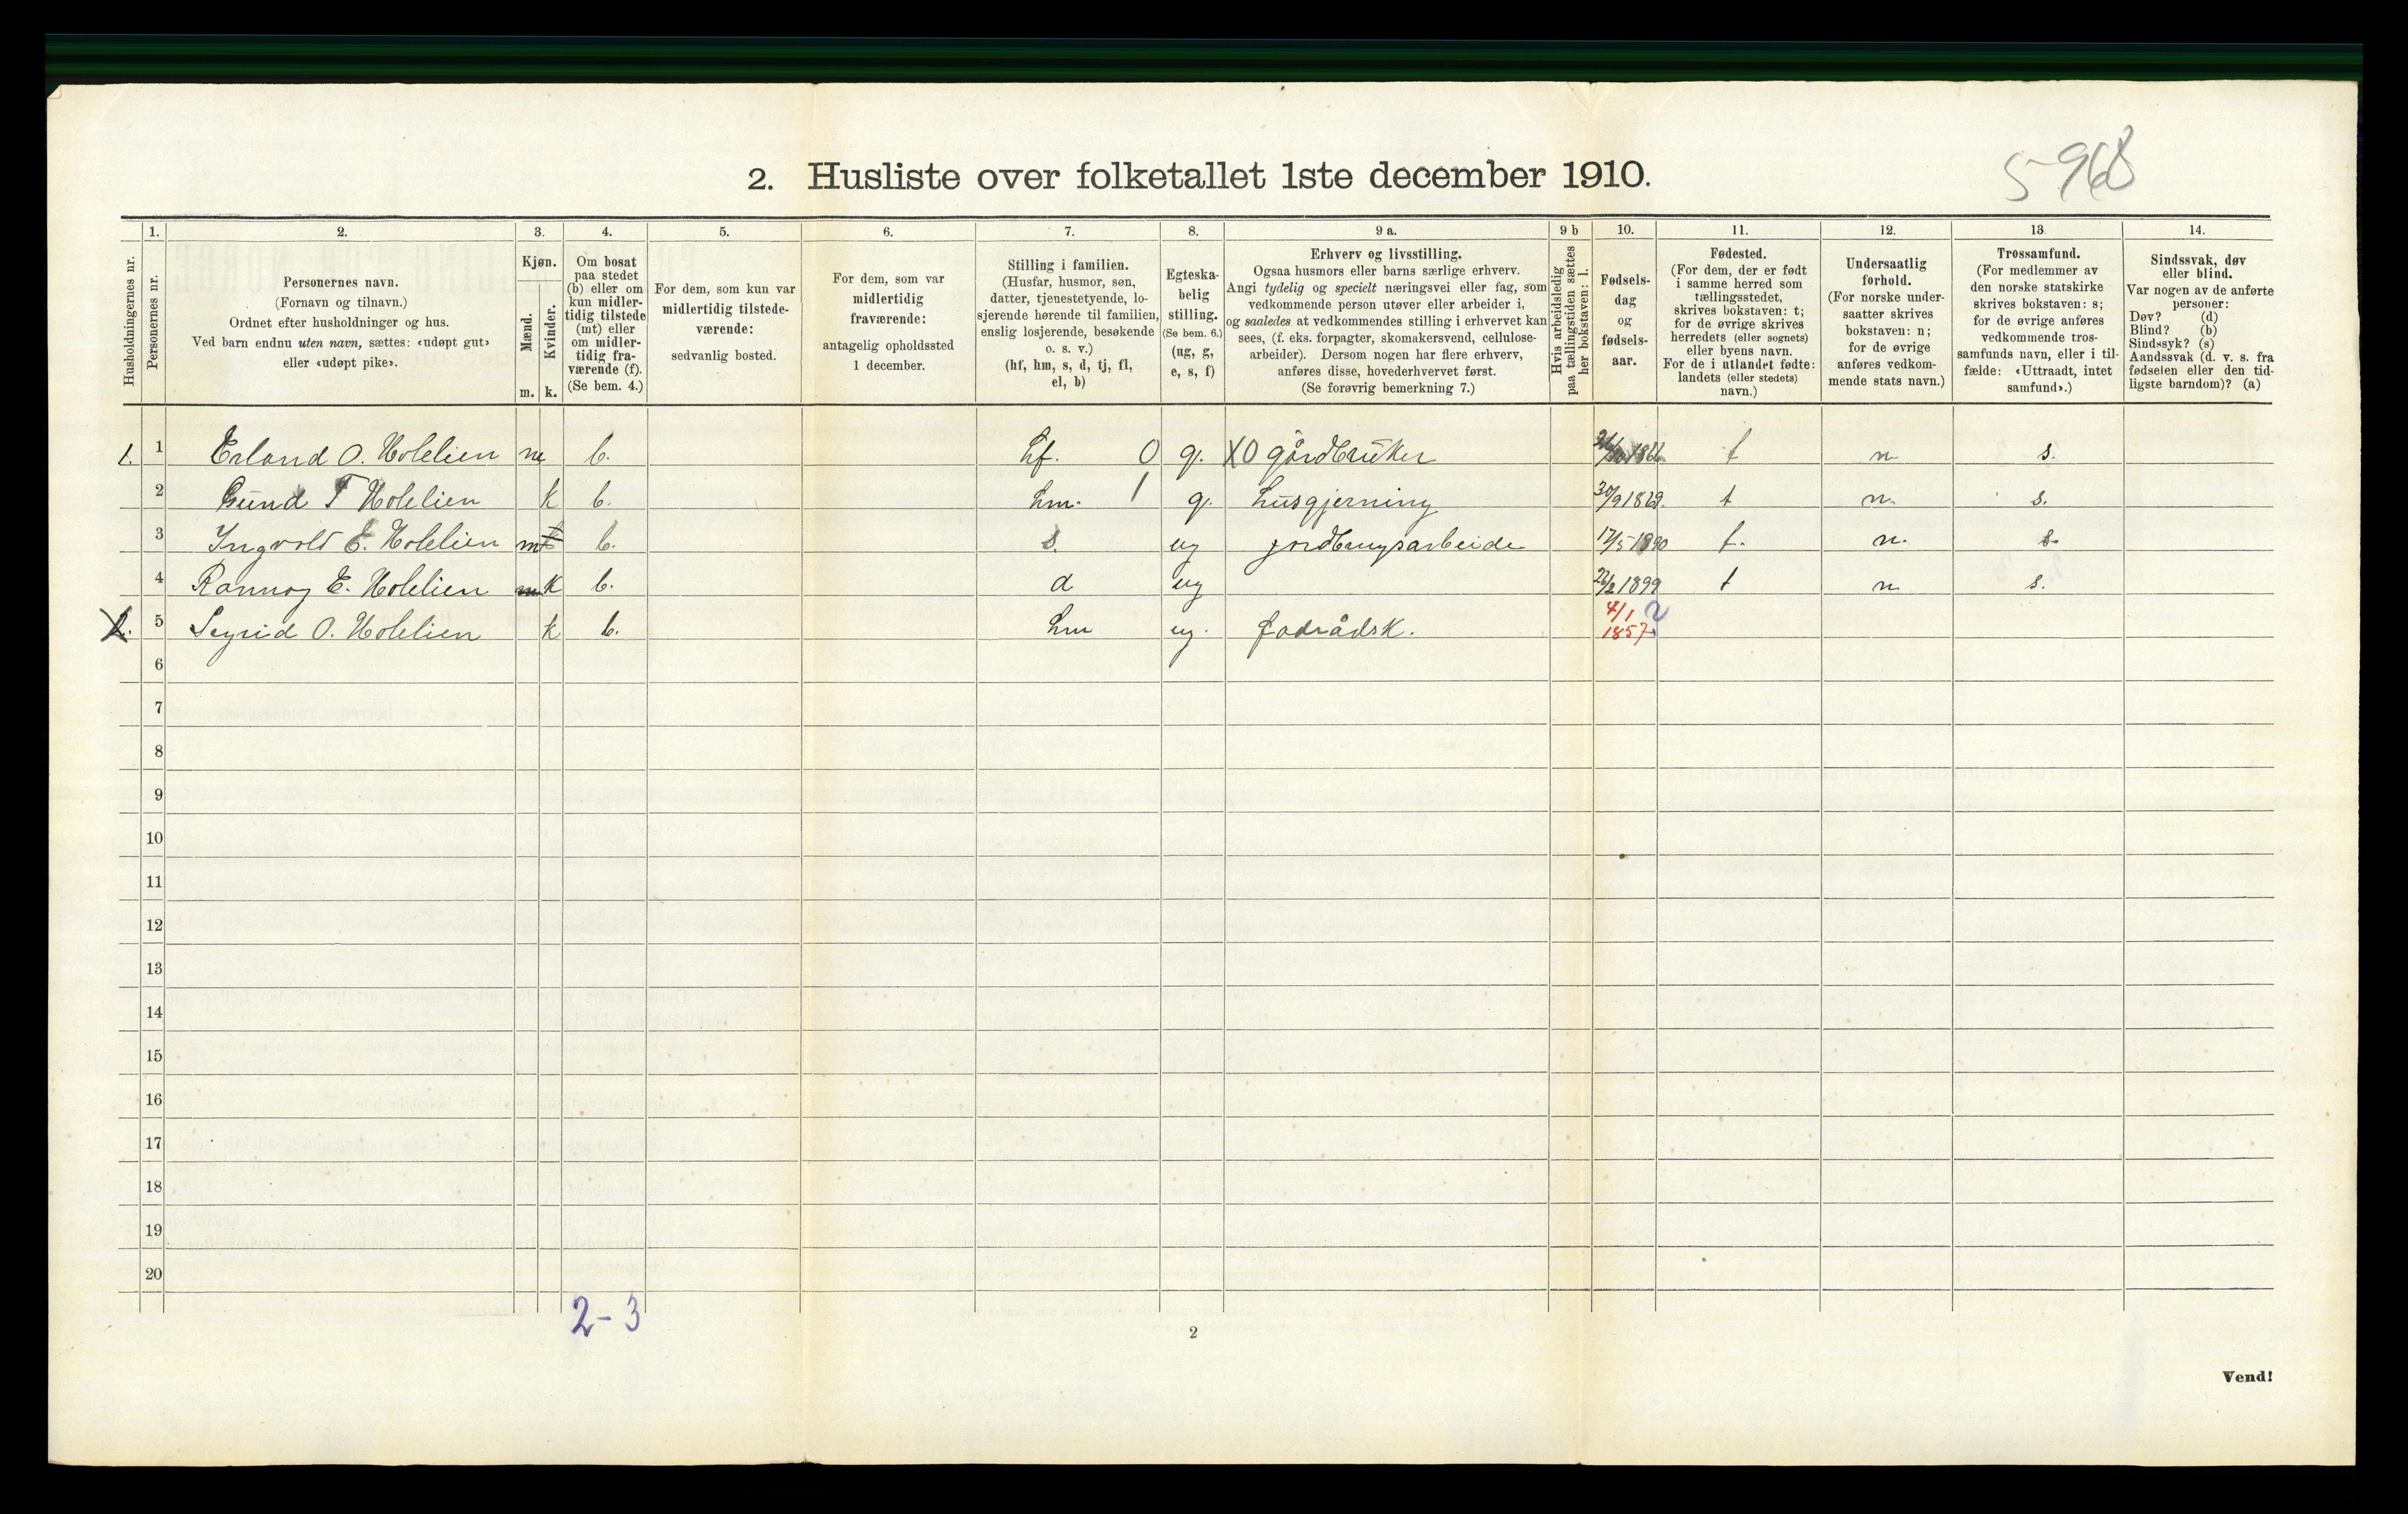 5-968
2. Husliste over folketallet 1ste december 1910.
Husholdningernes nr.
1.
Personernes nr.
2.
Personernes navn.
(Fornavn og tilnavn.)
Ordnet efter husholdninger og hus.
Ved barn endnu uten navn, sættes: «udøpt gut»
eller «udøpt pike».
3.
Kjøn.
Mænd.
Kvinder.
m. k.
4.
Om bosat
paa stedet
(b) eller om
kun midler-
tidig tilstede
(mt) eller
om midler-
tidig fra-
værende (f).
(Se bem. 4.)
5.
For dem, som kun var
midlertidig tilstede-
værende:
sedvanlig bosted.
6.
For dem, som var
midlertidig
fraværende:
antagelig opholdssted
1 december.
7.
Stilling i familien.
(Husfar, husmor, søn,
datter, tjenestetyende, lo-
sjerende hørende til familien,
enslig losjerende, besøkende
o. s. v.)
(hf, hm, s, d, tj, fl,
el, b)
8.
Egteska-
belig
stilling.
(Se bem. 6.)
(ug, g,
e, s, f)
9 a.
Erhverv og livsstilling.
Ogsaa husmors eller barns særlige erhverv.
Angi tydelig og specielt næringsvei eller fag, som
vedkommende person utøver eller arbeider i,
og saaledes at vedkommendes stilling i erhvervet kan
sees, (f. eks. forpagter, skomakersvend, cellulose-
arbeider). Dersom nogen har flere erhverv,
anføres disse, hovederhvervet først.
(Se forøvrig bemerkning 7.)
9 b
Hvis arbeidsledig
paa tællingstiden sættes
her bokstaven: l.
10.
Fødsels-
dag
og
fødsels-
aar.
11.
Fødested.
(For dem, der er født
i samme herred som
tællingsstedet,
skrives bokstaven: t;
for de øvrige skrives
herredets (eller sognets)
eller byens navn.
For de i utlandet fødte:
landets (eller stedets)
navn.)
12.
Undersaatlig
forhold.
(For norske under-
saatter skrives
bokstaven: n;
for de øvrige
anføres vedkom-
mende stats navn.)
13.
Trossamfund.
(For medlemmer av
den norske statskirke
skrives bokstaven: s;
for de øvrige anføres
vedkommende tros-
samfunds navn, eller i til-
fælde: «Uttraadt, intet
samfund».)
14.
Sindssvak, døv
eller blind.
Var nogen av de anførte
personer:
Døv? (d)
Blind? (b)
Sindssyk? (s)
Aandssvak (d. v. s. fra
fødselen eller den tid-
ligste barndom)? (a)
1. 1 Erland O. Holelien m b. hf. 0 g. X0 gårdbruker t n s.
2 Gund T Holelien k b. hm. 1 g. husgjerning 30/9 1869. t n. s.
3 Ingvold E. Holelien m k b. s. ug jordbrugsarbeide 17/5 1890 t. n. s.
4 Rannog E. Holelien m k b. d ug 22/2 1899 t n s.
2. 5 Seyrid O. Holelien k b. hm ug. fodrådsk. 4/1 1857. 2
6
7
8
9
10
11
12
13
14
15
16
17
18
19
20
2-3
2
Vend!